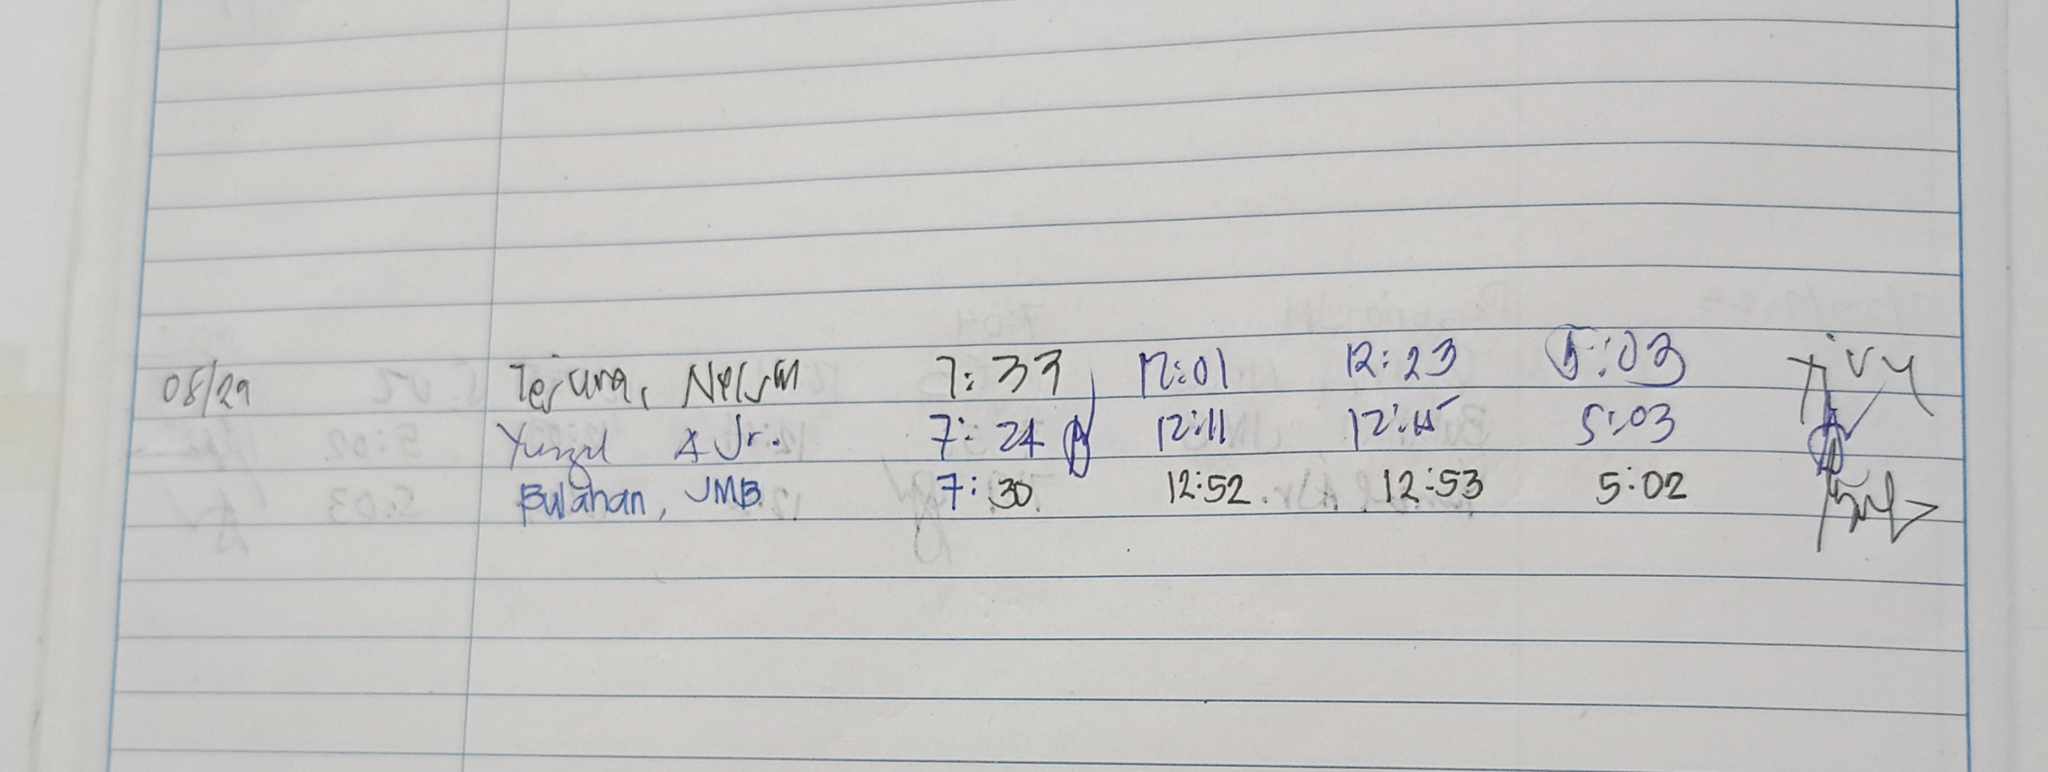 08/29 Nelson 7:33 12:01 12:23 5:03
A Jr. 7:24 12:11 12:45 5:03
Bulahan, JMB 7:30 12:52 12:53 5:02